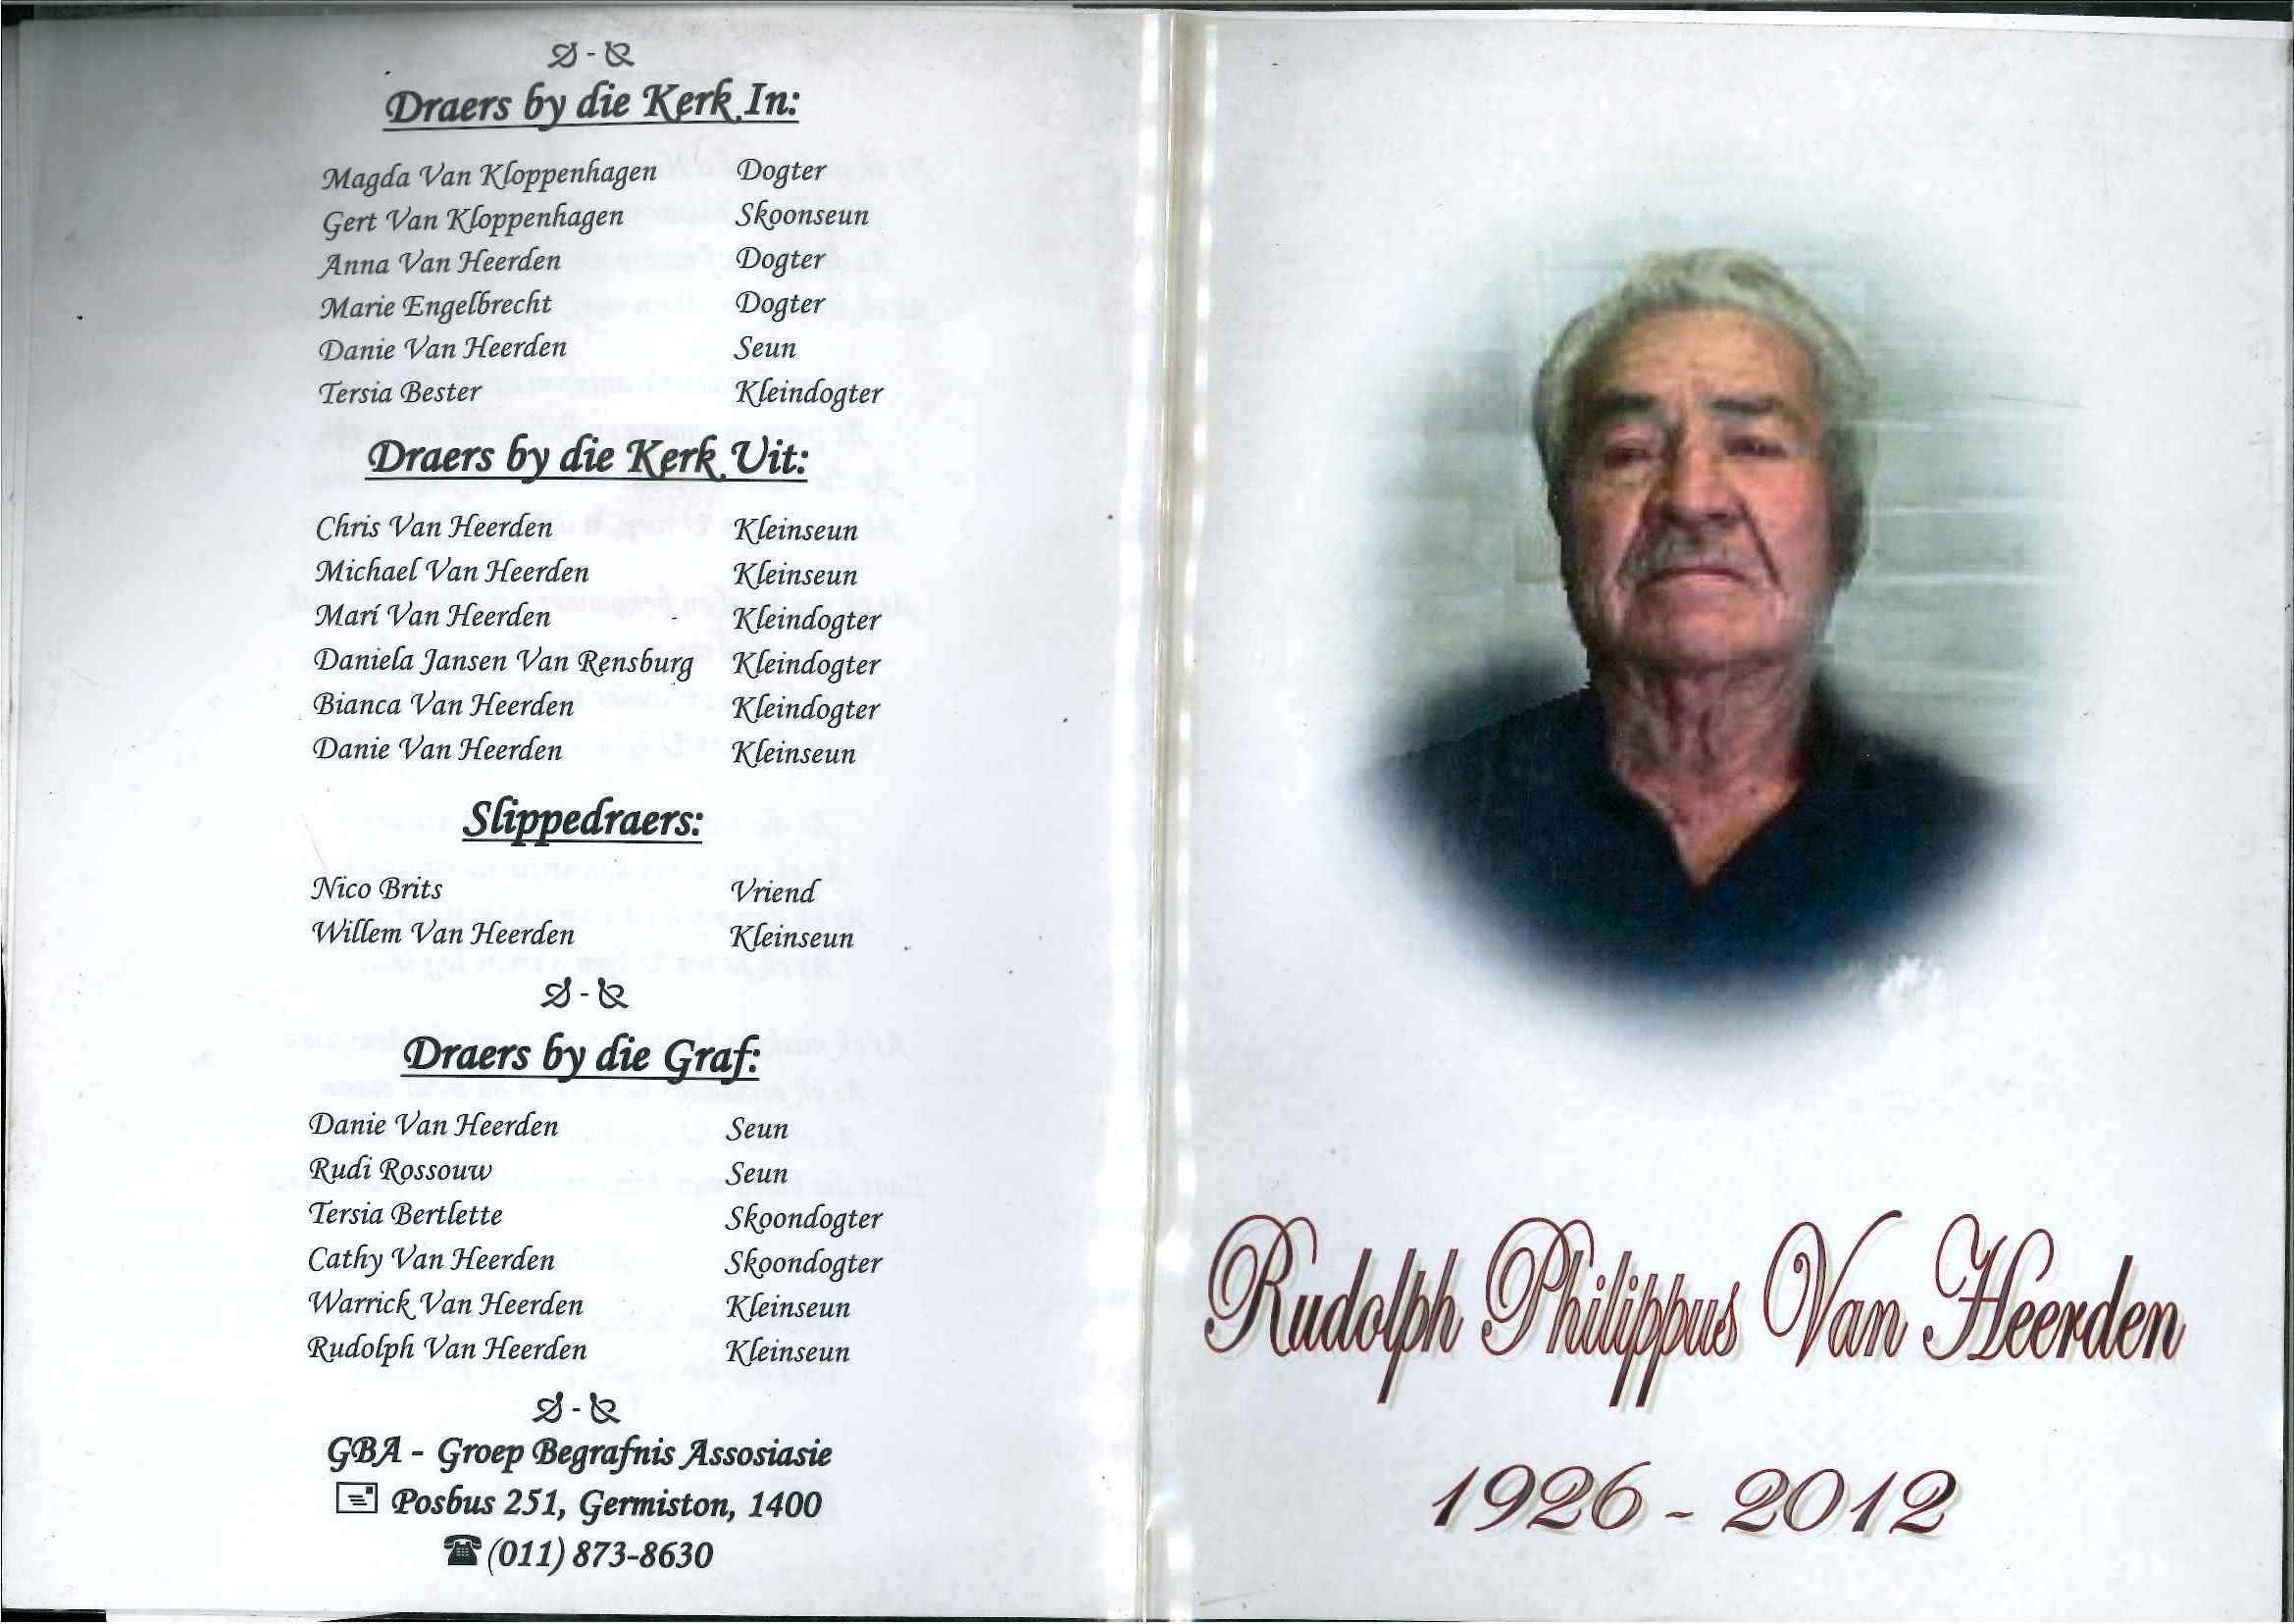 Draers by die Kerk In:
Magda Van Kloppenhagen Dogter
Gert Van Kloppenhagen Skoonseun
Anna Van Heerden Dogter
Marie Engelbrecht Dogter
Danie Van Heerden Seun
Tersia Bester Kleindogter
Draers by die Kerk Uit:
Chris Van Heerden Kleinseun
Michael Van Heerden Kleinseun
Marí Van Heerden Kleindogter
Daniela Jansen Van Rensburg Kleindogter
Bianca Van Heerden Kleindogter
Danie Van Heerden Kleinseun
Slippedraers:
Nico Brits Vriend
Willem Van Heerden Kleinseun
Draers by die Graf:
Danie Van Heerden Seun
Rudi Rossouw Seun
Tersia Bertlette Skoondogter
Cathy Van Heerden Skoondogter
Warrick Van Heerden Kleinseun
Rudolph Van Heerden Kleinseun
GBA - Groep Begrafnis Assosiasie
Posbus 251, Germiston, 1400
(011) 873-8630
Rudolph Philippus Van Heerden
1926 - 2012